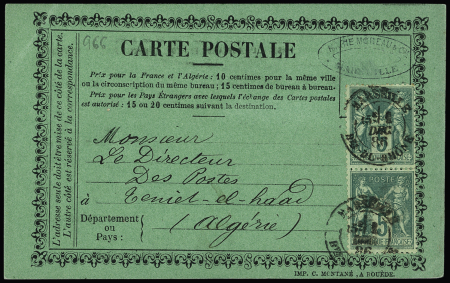 966
CARTE POSTALE
Prix pour la France et l'Algérie: 10 centimes pour la même ville
ou la circonscription du même bureau; 15 centimes de bureau à bureau-
Prix pour les Pays Étrangers avec lesquels l'échange des Cartes postales
est autorisé: 15 ou 20 centimes suivant la destination.
L'adresse seule doit être mise de ce côté de la carte.
L'autre côté est réservé à la correspondance.
Monsieur
Le Directeur
Des Postes
à Teniet-el-haad
Département
ou
Pays:
(Algérie)
POSTE
IMP. C. MONTANÉ, A BOUÉDE.